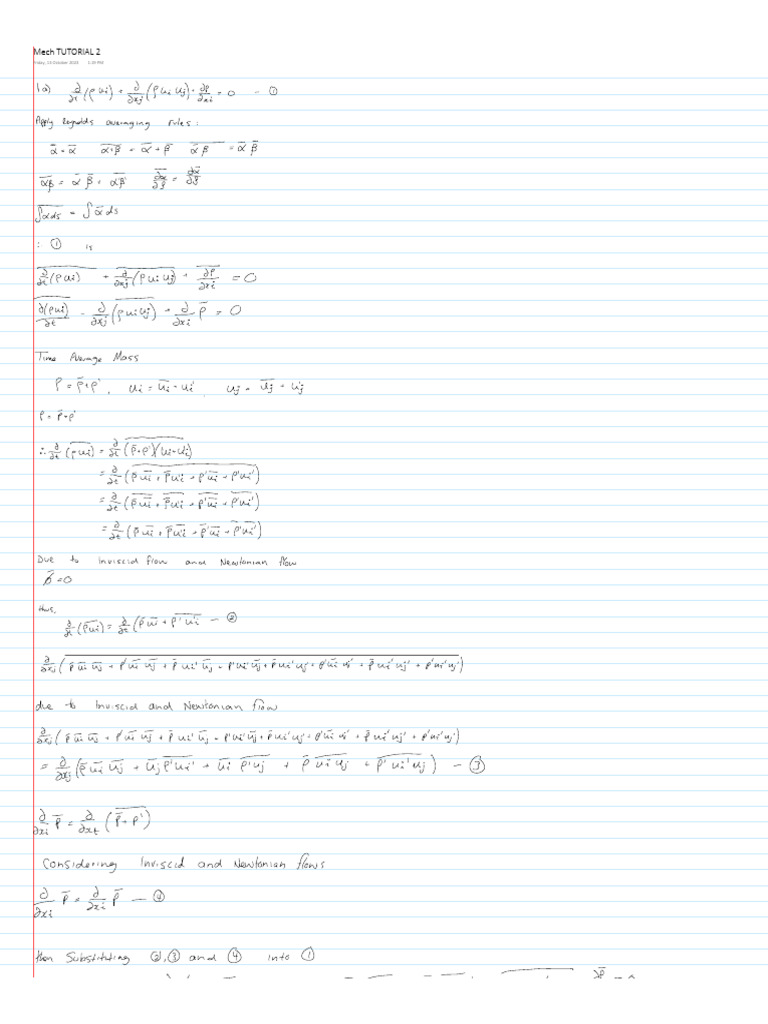 Mech TUTORIAL 2
Friday, 13 October 2023 1:29 PM
1a) ∂/∂t (ρ ui) + ∂/∂xj (ρ ui uj) + ∂P/∂xi = 0 — ①
Apply Reynolds averaging rules:
α̅ = α̅   \overline{α+β} = α̅ + β̅   \overline{α̅ β̅} = α̅ β̅
\overline{α̅β} = α̅ β̅ = α̅ β̅   \overline{∂α/∂ξ} = ∂α̅/∂ξ
\overline{∫α ds} = ∫ α̅ ds
: ① is
\overline{∂/∂t (ρ ui)} + \overline{∂/∂xj (ρ ui uj)} + \overline{∂P/∂xi} = 0
\overline{∂(ρ ui)}/∂t - ∂/∂xj (\overline{ρ ui uj}) + ∂/∂xi P̅ = 0
Time Average Mass
ρ = ρ̅ + ρ' , ui = u̅i - ui' , uj = u̅j + u'j
P = P̅ + P'
∴ ∂/∂t (\overline{ρ ui}) = ∂/∂t \overline{(ρ̅ + ρ')(ui + u'i)}
= ∂/∂t (\overline{ρ̅ u̅i + ρ̅ ui' + ρ' u̅i + ρ' ui'})
= ∂/∂t (\overline{ρ̅ u̅i} + \overline{ρ̅ ui'} + \overline{ρ' u̅i} + \overline{ρ' ui'})
= ∂/∂t (ρ̅ u̅i + ρ̅ \overline{ui'} + \overline{ρ'} u̅i + \overline{ρ' ui'})
Due to Inviscid flow and Newtonian flow
= 0
thus,
∂/∂t (\overline{ρ ui}) = ∂/∂t (ρ̅ u̅i + \overline{ρ' ui'} — ②
∂/∂xj (\overline{ρ̅ u̅i u̅j + ρ' u̅i u̅j + ρ̅ ui' u̅j + ρ' ui' u̅j + ρ̅ ui' uj' + ρ' u̅i uj' + ρ̅ ui' uj' + ρ' ui' uj'})
due to Inviscid and Newtonian flow
∂/∂xj (ρ̅ u̅i u̅j + ρ' u̅i u̅j + ρ̅ ui' u̅j + ρ' ui' u̅j + ρ̅ ui' uj' + ρ' u̅i uj' + ρ̅ ui' uj' + ρ' ui' uj')
= ∂/∂xj (ρ̅ u̅i u̅j + u̅j \overline{ρ' ui'} + u̅i \overline{ρ' uj} + ρ̅ \overline{ui uj} + \overline{ρ' ui' uj}) — ③
∂/∂xi P̅ = ∂/∂xt (\overline{P̅ + P'})
Considering Inviscid and Newtonian flows
∂/∂xi P̅ = ∂/∂xi P̅ — ④
then Substituting ②, ③ and ④ into ①